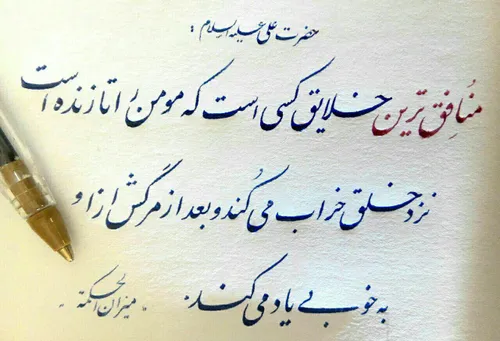 حضرت علی علیه السلام :
منافق ترین خلایق کسی است که مومن را تا زنده است
نزد خلق خراب می کُند و بعد از مرگش از او
به خوبی یاد می کند.
میزان الحکمة